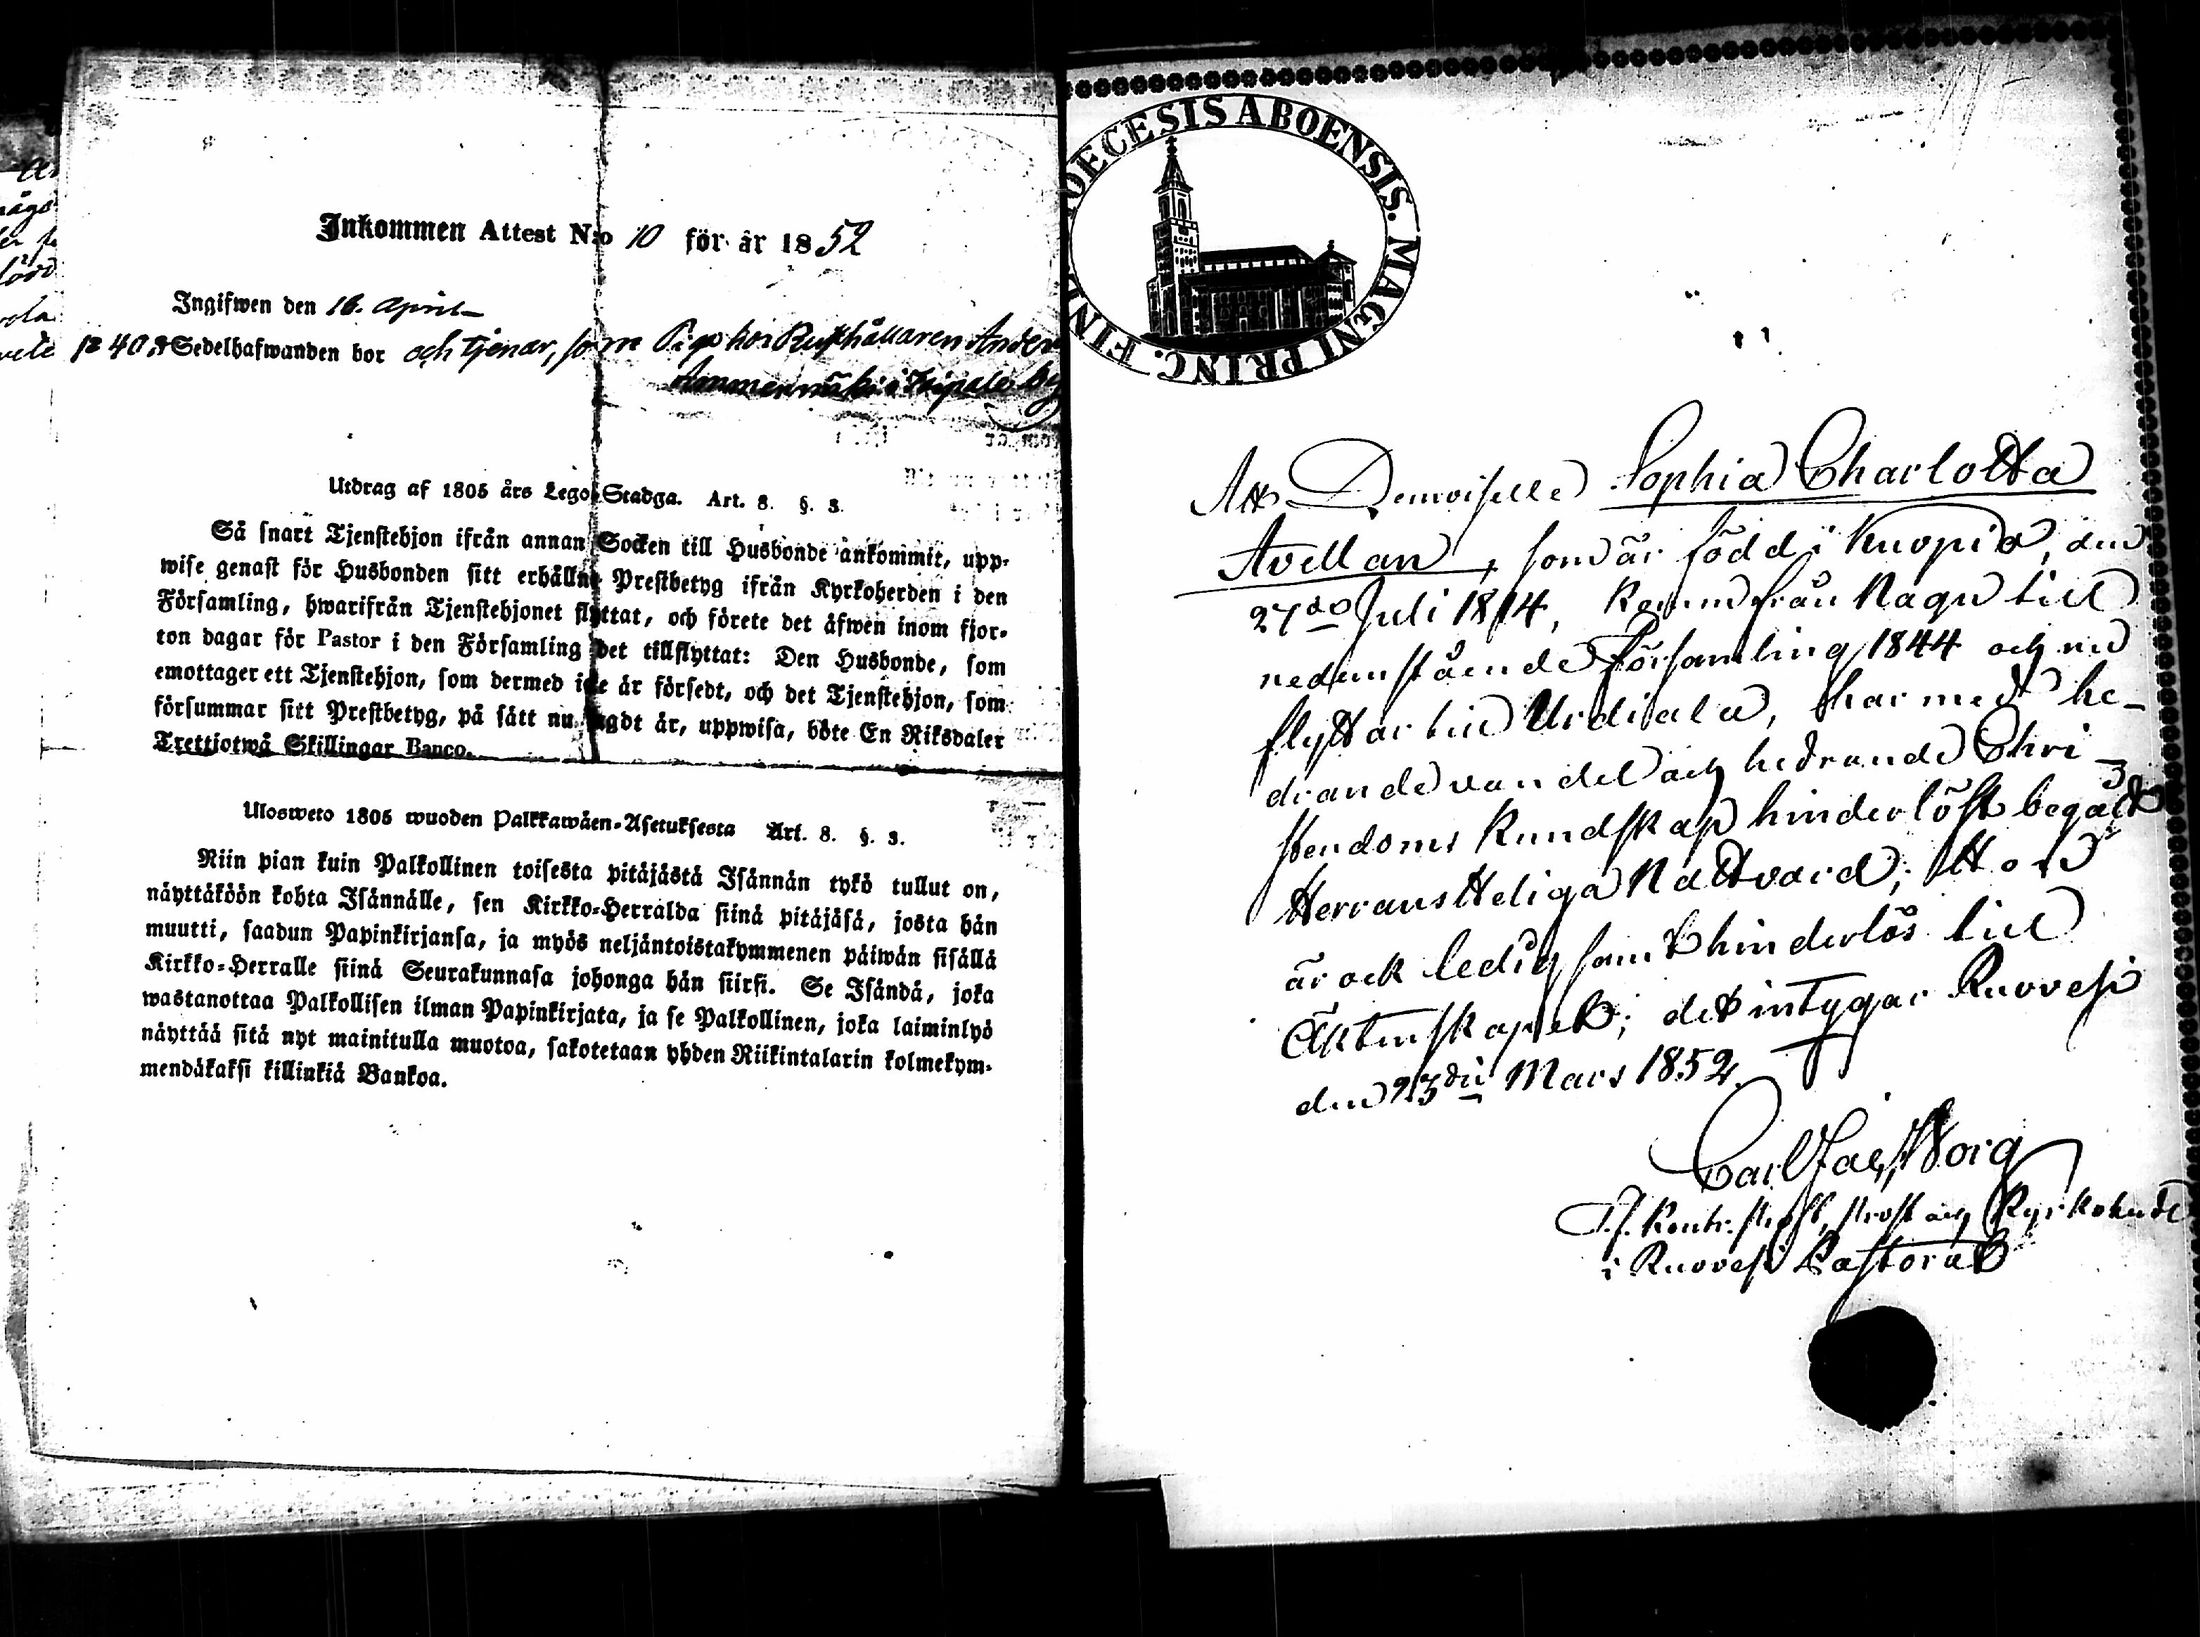 Inkommen Attest N:o 10 för år 1852
Ingifwen den 16. April
Sedelhafwanden bor och tjenar, som Piga hos Rusthållaren Anders
by
Utdrag af 1805 års Lego-Stadga. Art. 8. §. 3.
Så snart Tjenstehjon ifrån annan Socken till Husbonde ankommit, upp-
wise genast för Husbonden sitt erhållne Prestbetyg ifrån Kyrkoherden i den
Församling, hwarifrån Tjenstehjonet flyttat, och förete det äfwen inom fjor-
ton dagar för Pastor i den Församling det tillflyttat: Den Husbonde, som
emottager ett Tjenstehjon, som dermed icke är försedt, och det Tjenstehjon, som
försummar sitt Prestbetyg, på sätt nu sagdt är, uppwisa, böte En Riksdaler
Trettiotwå Skillingar Banco.
Ulosweto 1805 wuoden Palkkawäen-Asetuksesta Art. 8. §. 3.
Niin pian kuin Palkollinen toisesta pitäjästä Isännän tykö tullut on,
näyttäköön kohta Isännälle, sen Kirkko-Herralda siinä pitäjäsä, josta hän
muutti, saadun Papinkirjansa, ja myös neljäntoistakymmenen päiwän sisällä
Kirkko-Herralle siinä Seurakunnasa johonga hän siirsi. Se Isändä, joka
wastanottaa Palkollisen ilman Papinkirjata, ja se Palkollinen, joka laiminlyö
näyttää sitä nyt mainitulla muotoa, sakotetaan yhden Riikintalarin kolmekym-
mendäkaksi killinkiä Bankoa.
DECESIS ABOENSIS. MAGNI PRINC. FINL
Att Demoiselle Sophia Charlotta
Avellan, som är född i Kuopio, den
27de Juli 1814, kommen från Nagu till
nedanstående Församling 1844 och nu
flyttar till Urdiala, har med he-
drande vandel och hedrande Chri-
stendoms Kundskap hinderlöst begått
Herrans Heliga Nattvard; Hon
är ock ledig samt hinderlös till
Äktenskapet; det intygar Ruovesi
den 23die Mars 1852.
Carl
T.f. Kontr. prost, prost och Kyrkoherde
i Ruovesi Pastorat